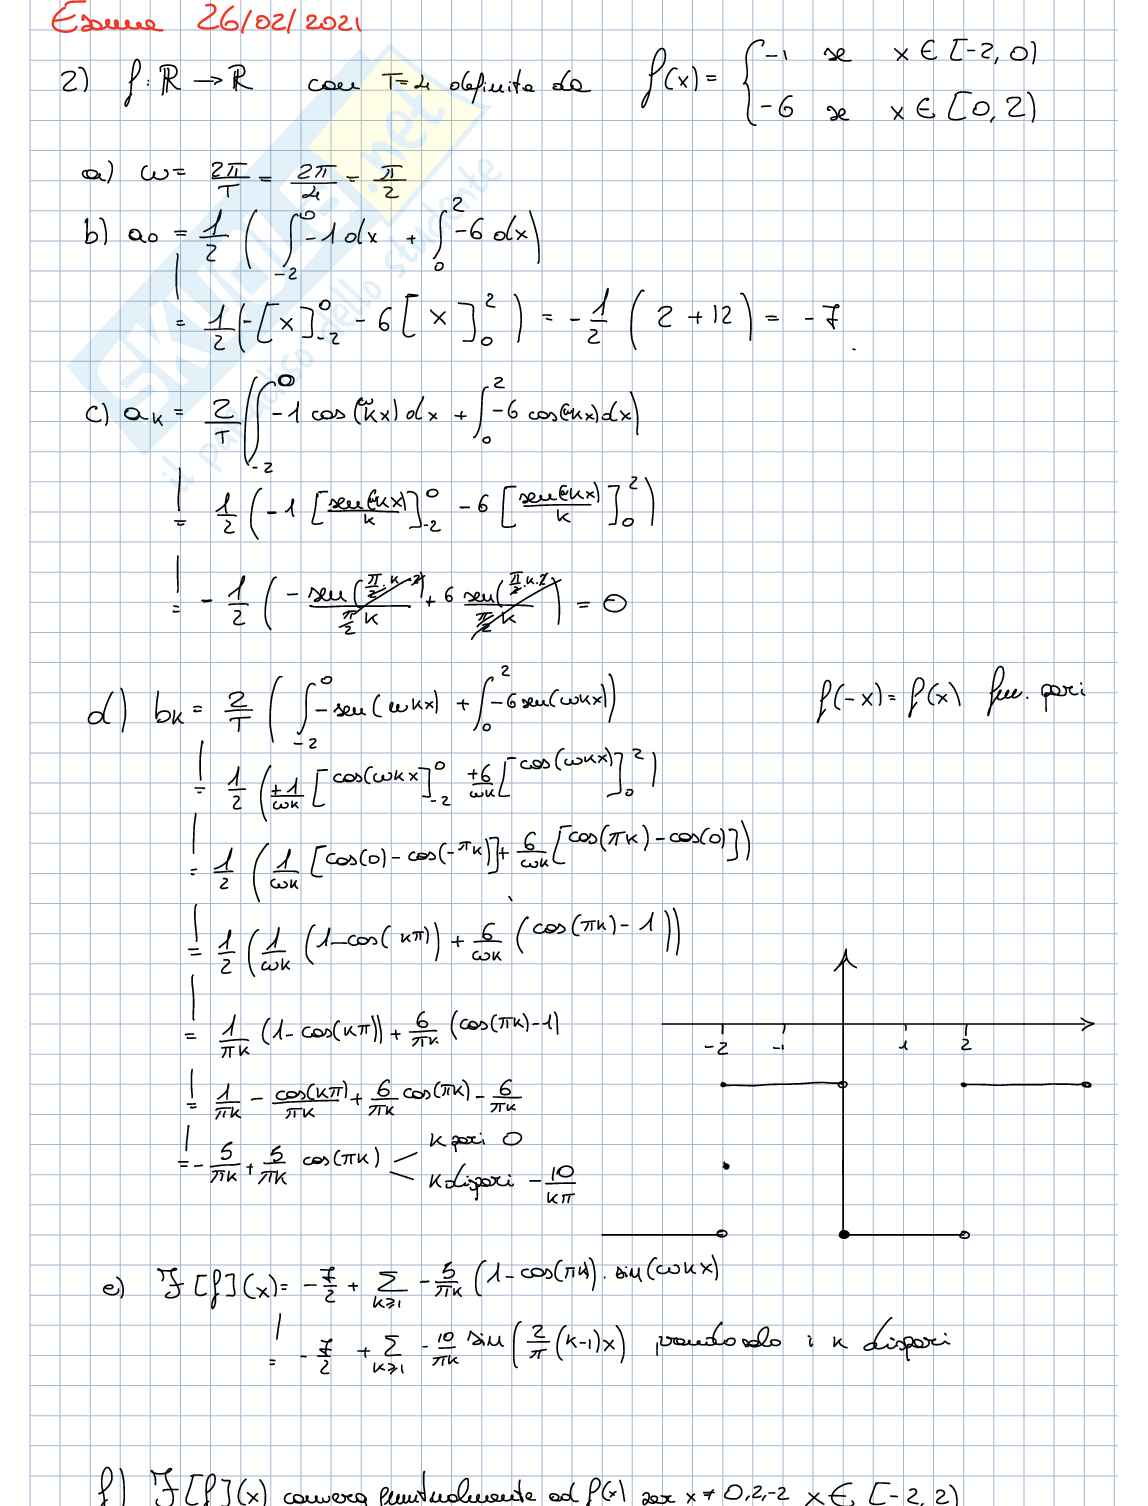 Esame 26/02/2021
2) f: ℝ → ℝ con T=4 definita da f(x) = { -1 se x ∈ [-2, 0)
-6 se x ∈ [0, 2)
a) ω = 2π/T = 2π/4 = π/2
b) a₀ = 1/2 ( ∫₋₂⁰ -1 dx + ∫₀² -6 dx )
= 1/2 ( -[x]₋₂⁰ - 6[x]₀² ) = -1/2 ( 2 + 12 ) = -7
c) aₖ = 2/T ( ∫₋₂⁰ -1 cos(ωkx) dx + ∫₀² -6 cos(ωkx) dx )
= 1/2 ( -1 [ sen(ωkx)/k ]₋₂⁰ - 6 [ sen(ωkx)/k ]₀² )
= - 1/2 ( - sen(π/2·k·2)/(π/2 k) + 6 sen(π/2·k·2)/(π/2 k) ) = 0
d) bₖ = 2/T ( ∫₋₂⁰ -sen(ωkx) + ∫₀² -6 sen(ωkx) ) f(-x) = f(x) fun. pari
= 1/2 ( +1/ωk [cos(ωkx)]₋₂⁰ +6/ωk [cos(ωkx)]₀² )
= 1/2 ( 1/ωk [cos(0) - cos(-πk)] + 6/ωk [cos(πk) - cos(0)] )
= 1/2 ( 1/ωk (1 - cos(kπ)) + 6/ωk (cos(πk) - 1) )
= 1/πk (1 - cos(kπ)) + 6/πk (cos(πk) - 1)
= 1/πk - cos(kπ)/πk + 6/πk cos(πk) - 6/πk
= - 5/πk + 5/πk cos(πk)
k pari 0
k dispari - 10/kπ
-2 -1 1 2
e) F[f](x) = - 7/2 + Σ k≥1 - 5/πk (1 - cos(πk)) · sin(ωkx)
= - 7/2 + Σ k≥1 - 10/πk sin( 2/π (k-1)x ) prendo solo i k dispari
f) F[f](x) converg puntualmente ad f(x) per x ≠ 0,2,-2 x ∈ [-2, 2)
SKUOLA.net
il paradiso dello studente